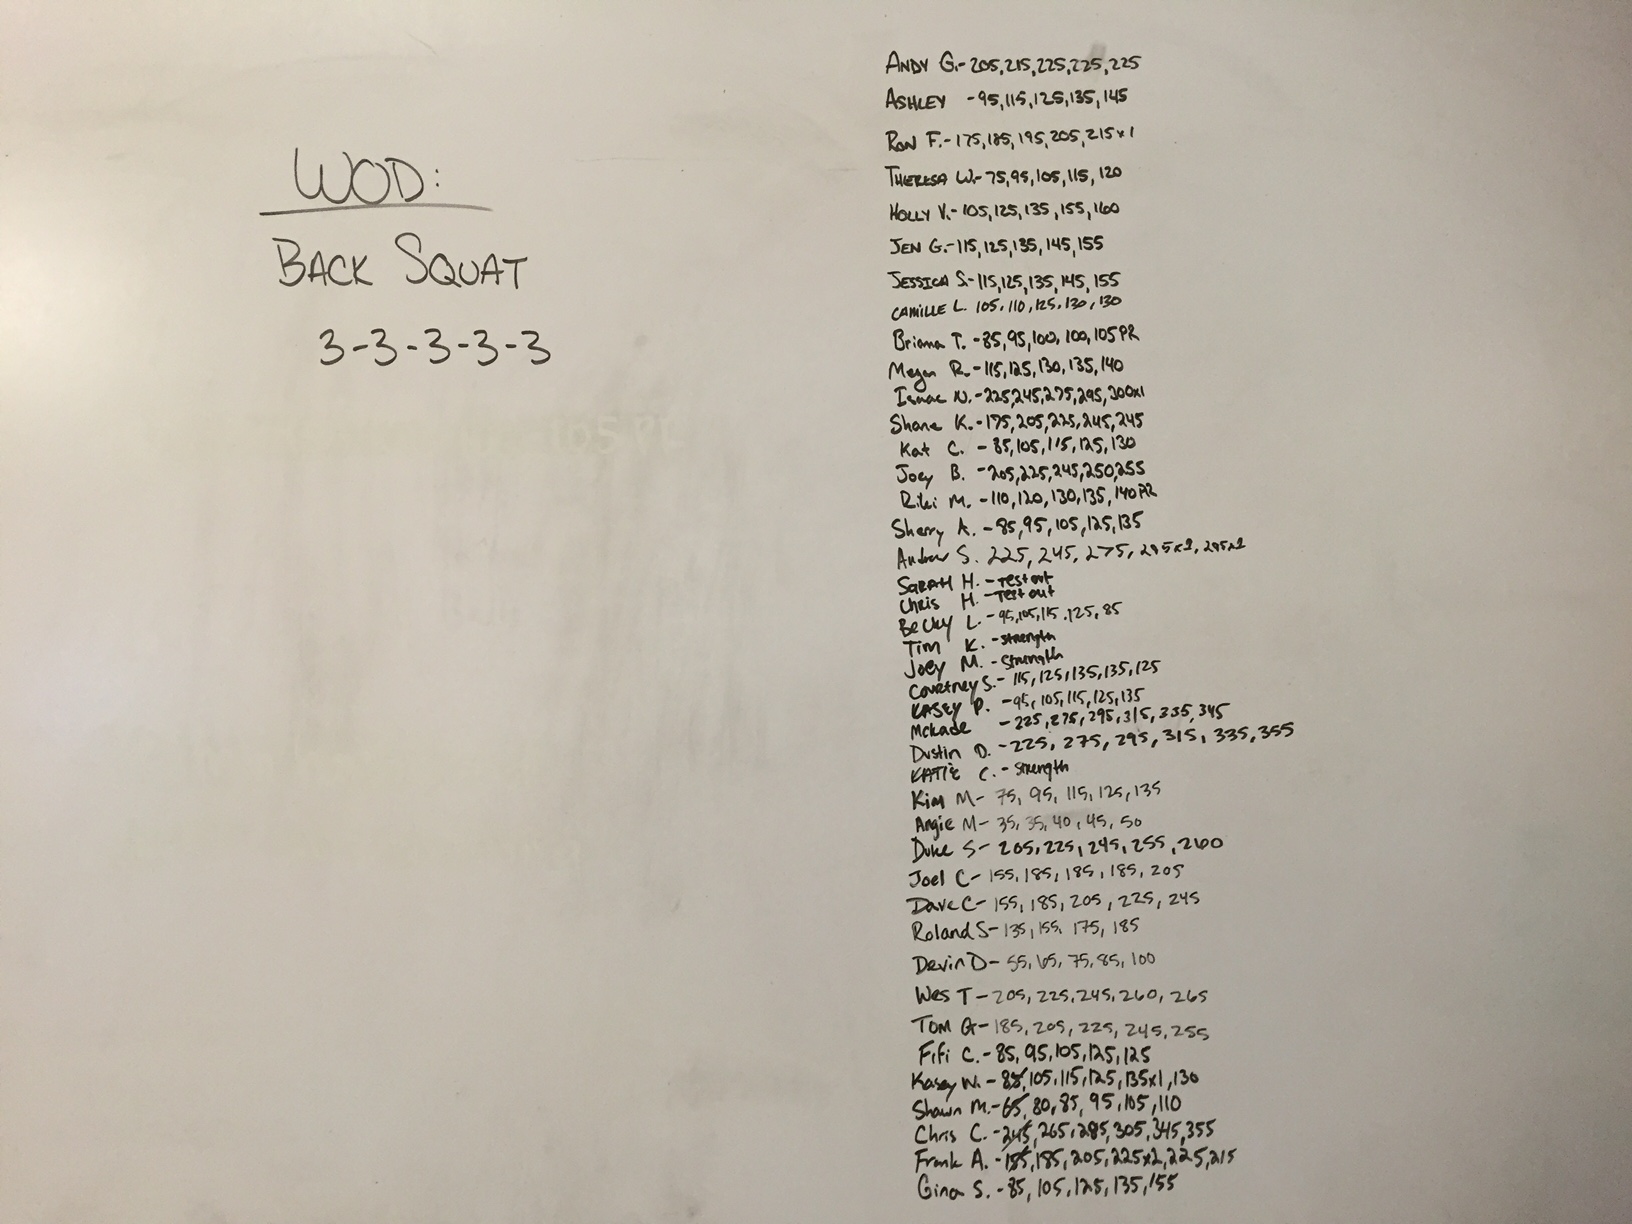 WOD:
BACK SQUAT
3-3-3-3-3
ANDY G.-205,215,225,225,225
ASHLEY -95,115,125,135,145
RON F.-175,185,195,205,215x1
THERESA W.-75,95,105,115,120
HOLLY V.-105,125,135,155,160
JEN G.-115,125,135,145,155
JESSICA S.-115,125,135,145,155
CAMILLE L. 105,110,125,130,130
Briana T. -85,95,100,100,105PR
Megan R.-115,125,130,135,140
Isaac N.-225,245,275,295,300x1
Shane K.-175,205,225,245,245
Kat C. -85,105,115,125,130
Joey B. -205,225,245,250,255
Riki M. -110,120,130,135,140PR
Sherry A. -85,95,105,125,135
Andrew S. 225, 245, 275, 295x2, 295x2
SARAH H. -Test out
Chris H. -Test out
BeCky L. -95,105,115,125,85
Tim K. -strength
Joey M. -Strength
Courtney S.- 115,125,135,135,125
KASEY P. -95,105,115,125,135
Mckade -225,275,295,315,335,345
Dustin D. -225, 275, 295, 315, 335,355
KATIE C. -Strength
Kim M- 75, 95, 115, 125, 135
Angie M- 35, 35, 40, 45, 50
Duke S- 205,225,245,255,260
Joel C- 155,185,185,185,205
Dave C- 155,185,205,225,245
Roland S- 135,155,175,185
Devin D- 55,65,75,85,100
Wes T- 205,225,245,260,265
TOM G- 185,205,225,245,255
Fifi C.-85,95,105,125,125
Kasey W.-85,105,115,125,135x1,130
Shawn M.-65,80,85,95,105,110
Chris C. -245,265,285,305,345,355
Frank A. -185,185,205,225x2,225,215
Gina S. -85,105,125,135,155